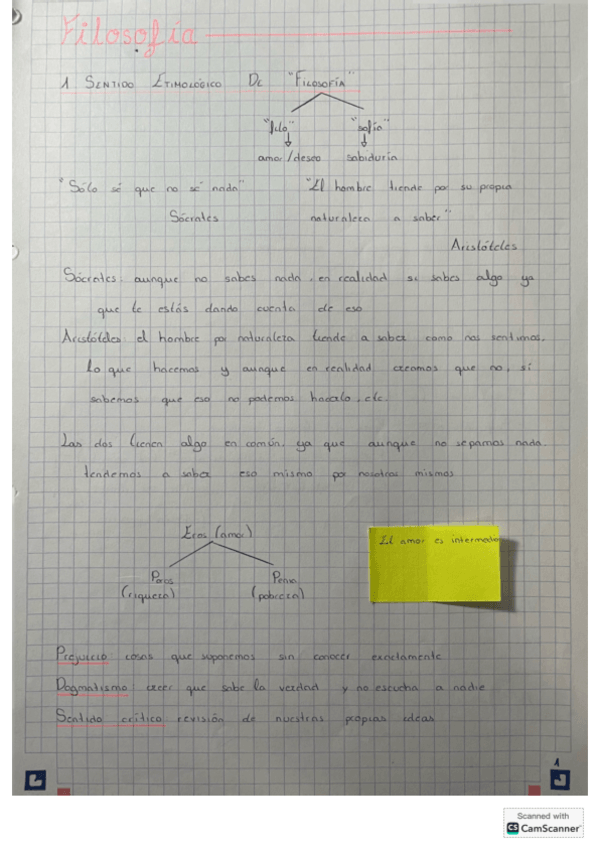 Filosofía
1 SENTIDO ETIMOLÓGICO DE "FILOSOFÍA"
"filo" "sofía"
amor/deseo sabiduría
"Sólo sé que no sé nada" "El hombre tiende por su propia
Sócrates naturaleza a saber"
Aristóteles
Sócrates: aunque no sabes nada, en realidad si sabes algo ya
que te estás dando cuenta de eso
Aristóteles: el hombre por naturaleza tiende a saber como nos sentimos,
lo que hacemos y aunque en realidad creamos que no, si
sabemos que eso no podemos hacerlo, etc.
Las dos tienen algo en común, ya que aunque no sepamos nada,
tendemos a saber eso mismo por nosotros mismos
Eros (amor)
Poros Penia
(riqueza) (pobreza)
El amor es intermedio
Prejuicio: cosas que suponemos sin conocer exactamente
Dogmatismo: creer que sabe la verdad y no escucha a nadie
Sentido crítico: revisión de nuestras propias ideas
1
Scanned with
CS CamScanner